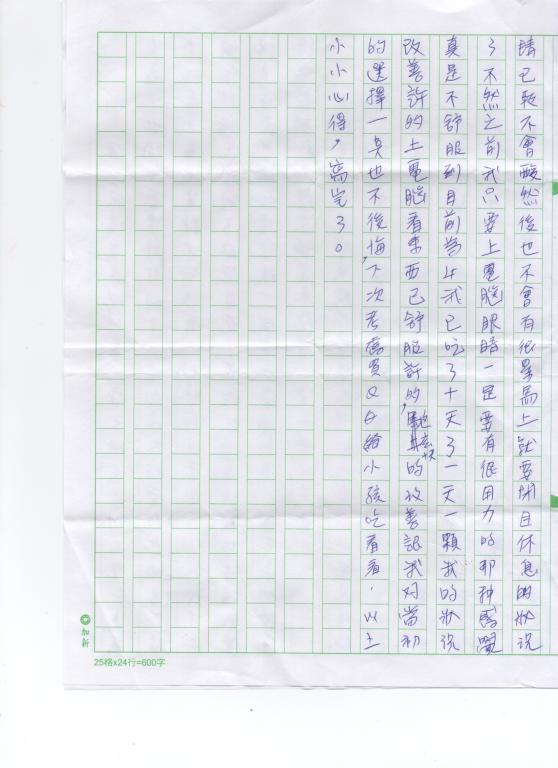 睛已較不會酸然後也不會有很累馬上就要閉目休息的狀況
了不然之前我只要上電腦眼睛一是要有很用力的那种感覺
真是不舒服到目前為止我已吃了十天了一天一顆我的狀況
改善許的上電腦看東西已舒服許的,馳玄快的改善認我对當初
的選擇一真也不後悔,下次考慮買QQ給小孩吃看看.以上
小小心得,寫完了。
加新
25格x24行=600字